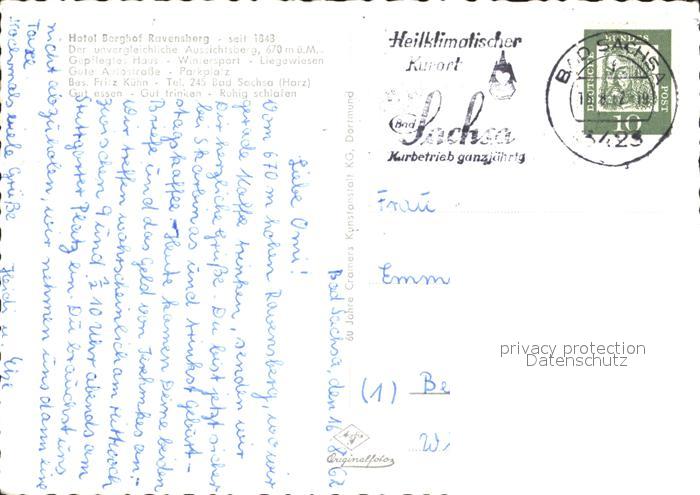 Hotel Berghof Ravensberg - seit 1843
Der unvergleichliche Aussichtsberg, 670 m ü.M.
Gepflegtes Haus - Wintersport - Liegewiesen
Gute Autostraße - Parkplatz
Bes. Fritz Kühn - Tel. 245 Bad Sachsa (Harz)
Gut essen - Gut trinken - Ruhig schlafen
Bad Sachsa, den 16. 62
Liebe Omi!
Vom 670 m hohen Ravensberg, wo wir
gerade Kaffee trinken, senden wir
Dir herzliche Grüße. Du bist jetzt sicher
bei und trinkst Geburts-
tagskaffee. Heute kamen Deine beiden
Briefe und das Geld von an.
Wir treffen wahrscheinlich am Mittwoch
zwischen 9 und ½ 10 Uhr abends am
Stuttgarter Platz ein. Du brauchst uns
nicht abzuholen, wir nehmen uns dann eine
Taxe.
Nochmal viele Grüße
60 Jahre Cramers Kunstanstalt KG, Dortmund
Originalfotos
Heilklimatischer
Kurort
Bad Sachsa
Kurbetrieb ganzjährig
BAD SACHSA
3423
DEUTSCHE BUNDESPOST
10
Frau
Emm
(1) Be
Wi
privacy protection
Datenschutz